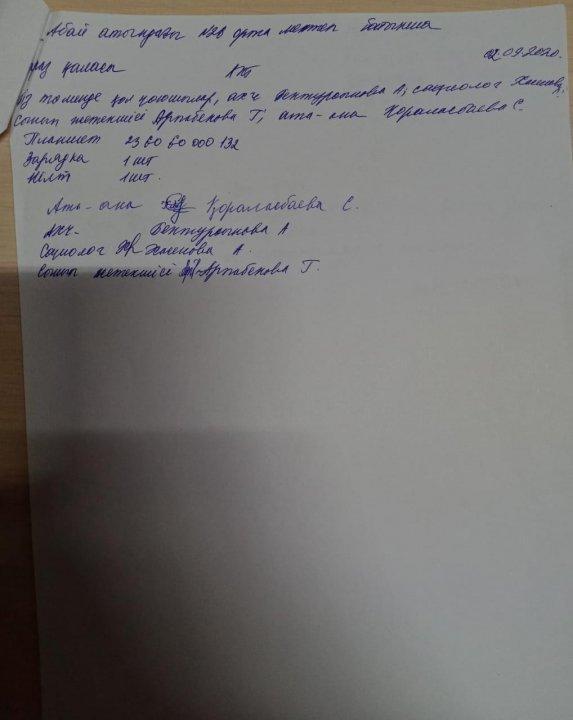 Абай атындағы орта мектеп бойынша
02.09.2020.
қаласы Акт
біз төменде қол қоюшылар, ахч Бектурганова А, социолог Хасенова,
Сынып жетекшісі Артабекова Г, ата-ана Кораласбаева С.
Планшет 23 60 60 000 132
Зарядка 1 шт
1 шт.
Ата-ана Кораласбаева С.
Ахч- Бектурганова А
Социолог Хасенова А.
Сынып жетекшісі Артабекова Г.